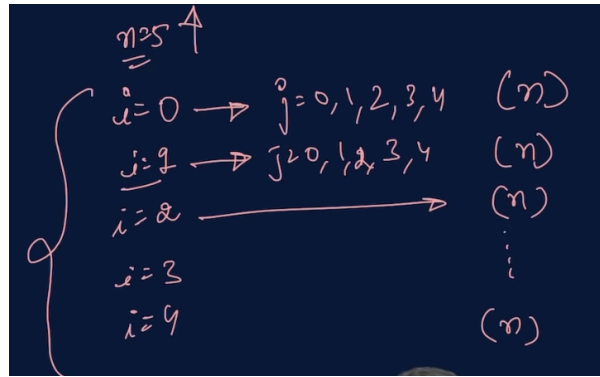 n=5 ↑
i=0 → j=0,1,2,3,4 (n)
i=1 → j=0,1,2,3,4 (n)
i=2 → (n)
i=3
i=4 (n)